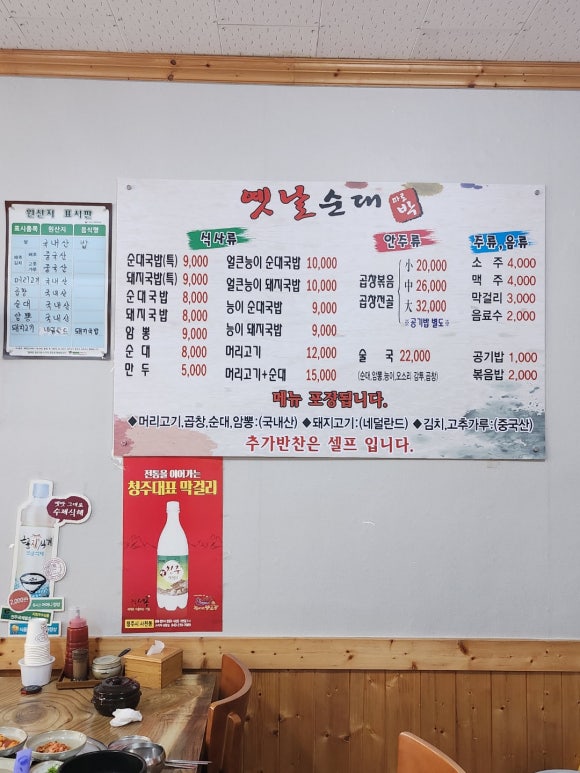 옛날순대
따로
박
식사류
순대국밥(특) 9,000
돼지국밥(특) 9,000
순대국밥 8,000
돼지국밥 8,000
암뽕 9,000
순대 8,000
만두 5,000
얼큰능이 순대국밥 10,000
얼큰능이 돼지국밥 10,000
능이 순대국밥 9,000
능이 돼지국밥 9,000
머리고기 12,000
머리고기+순대 15,000
안주류
곱창볶음
곱창전골
小 20,000
中 26,000
大 32,000
※공기밥 별도※
술국 22,000
(순대,암뽕,능이,오소리 감투,곱창)
주류,음류
소주 4,000
맥주 4,000
막걸리 3,000
음료수 2,000
공기밥 1,000
볶음밥 2,000
메뉴 포장됩니다.
◆머리고기,곱창,순대,암뽕:(국내산) ◆돼지고기:(네덜란드) ◆김치,고추가루:(중국산)
추가반찬은 셀프 입니다.
원산지 표시판
표시품목 원산지 음식명
쌀 국내산 밥
배추 중국산
고추가루 중국산
머리고기 국내산
곱창 국내산
순대 국내산
암뽕 국내산
돼지고기 네덜란드 돼지국밥
전통을 이어가는
청주대표 막걸리
옛맛 그대로
수제식혜
2,000원